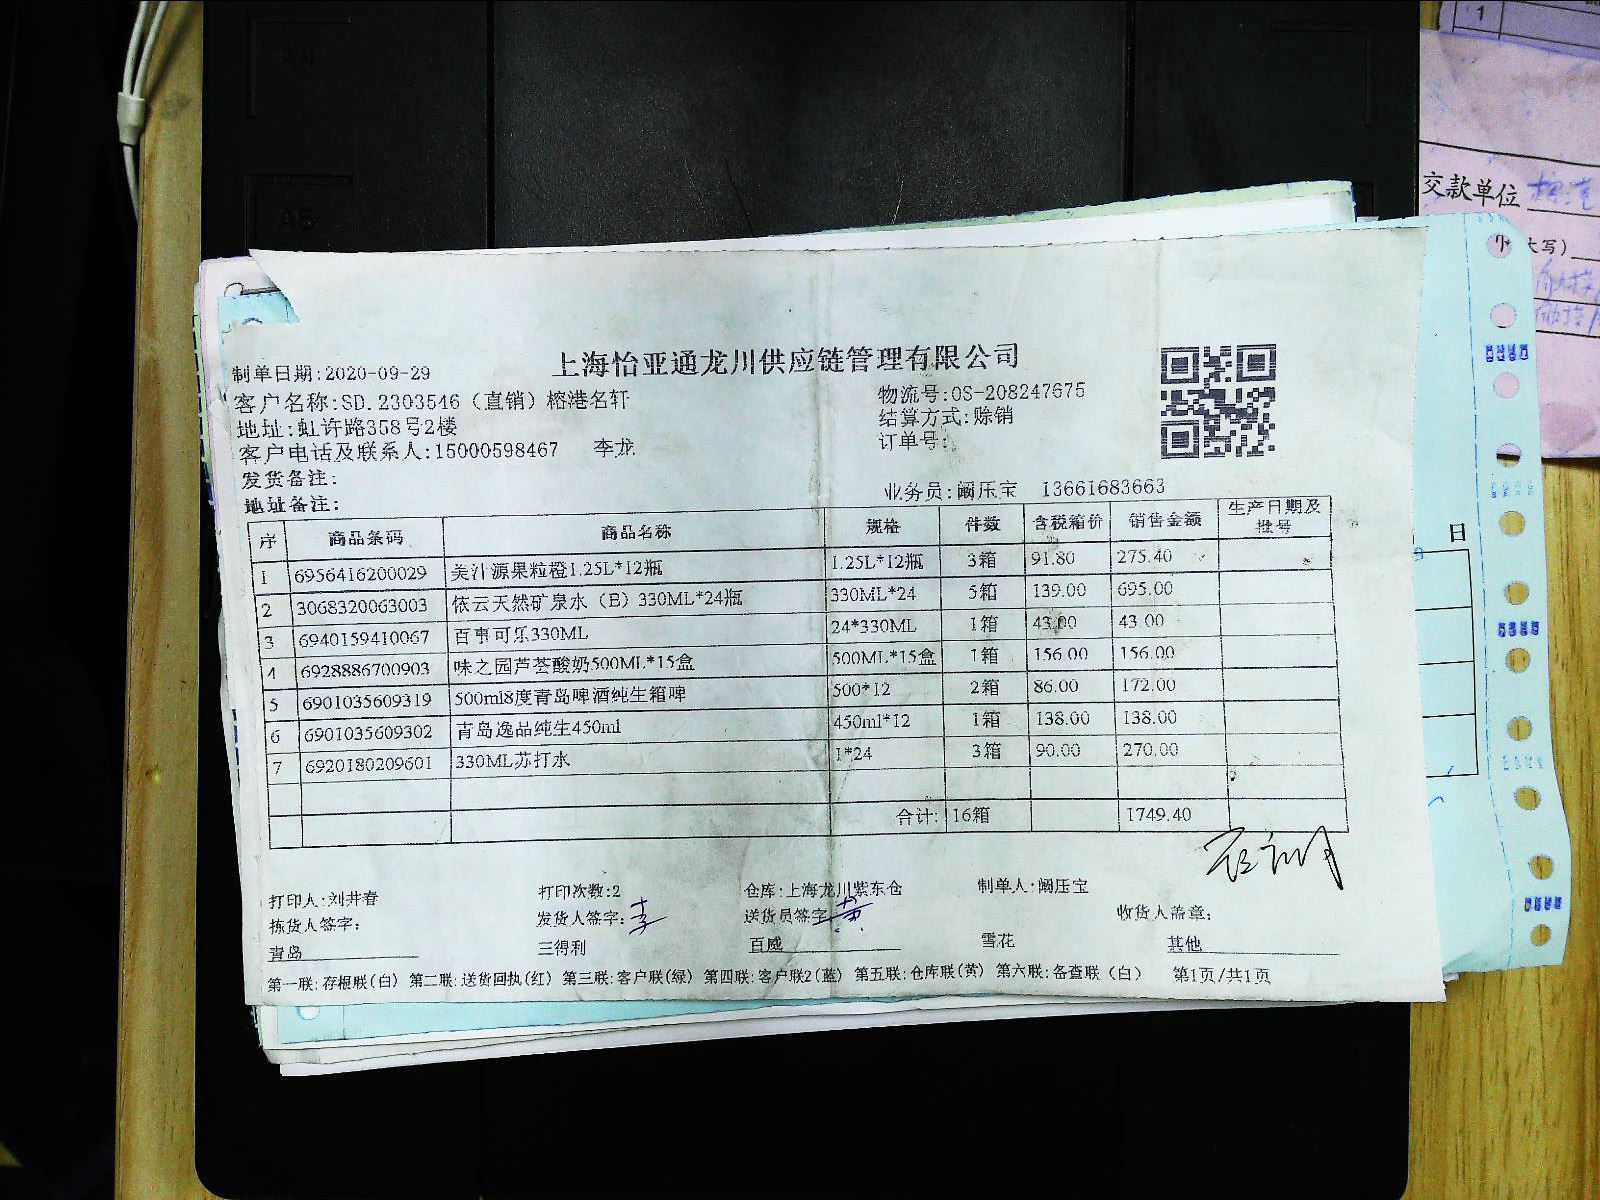 上海怡亚通龙川供应链管理有限公司
制单日期:2020-09-29
客户名称:SD.2303546（直销）榕港名轩
物流号:OS-208247675
地址:虹许路358号2楼
结算方式:赊销
客户电话及联系人:15000598467 李龙
订单号:
发货备注:
地址备注:
业务员:阚压宝 13661683663
序 商品条码 商品名称 规格 件数 含税箱价 销售金额 生产日期及批号
1 6956416200029 美汁源果粒橙1.25L*12瓶 1.25L*12瓶 3箱 91.80 275.40
2 3068320063003 依云天然矿泉水（B）330ML*24瓶 330ML*24 5箱 139.00 695.00
3 6940159410067 百事可乐330ML 24*330ML 1箱 43.00 43.00
4 6928886700903 味之园芦荟酸奶500ML*15盒 500ML*15盒 1箱 156.00 156.00
5 6901035609319 500ml8度青岛啤酒纯生箱啤 500*12 2箱 86.00 172.00
6 6901035609302 青岛逸品纯生450ml 450ml*12 1箱 138.00 138.00
7 6920180209601 330ML苏打水 1*24 3箱 90.00 270.00
合计: 16箱 1749.40
打印人:刘井春 打印次数:2 仓库:上海龙川紫东仓 制单人:阚压宝
拣货人签字: 发货人签字:李 送货员签字:黄 收货人盖章:
青岛 三得利 百威 雪花 其他
第一联:存根联(白) 第二联:送货回执(红) 第三联:客户联(绿) 第四联:客户联2(蓝) 第五联:仓库联(黄) 第六联:备查联（白） 第1页/共1页
1
交款单位
大写)
日
A4
A5